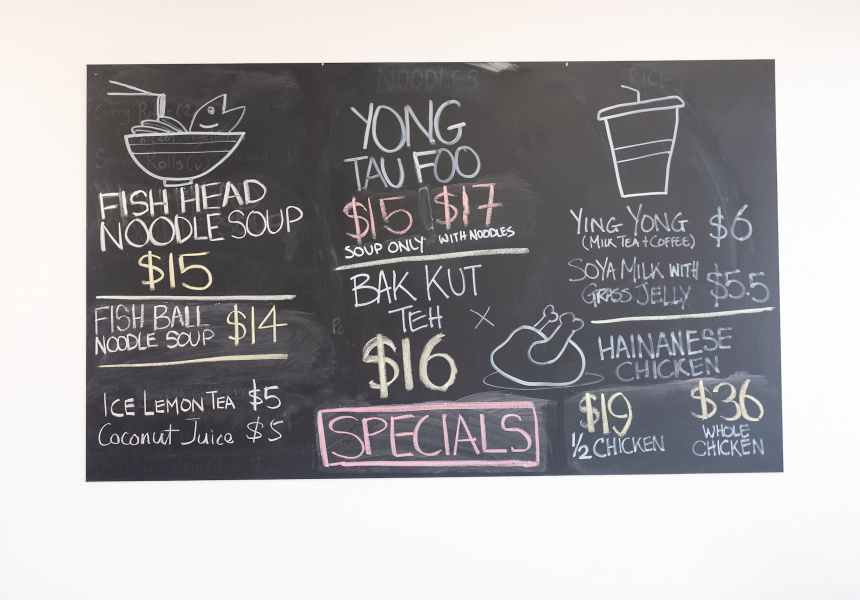 FISH HEAD
NOODLE SOUP
$15
FISH BALL
NOODLE SOUP $14
ICE LEMON TEA $5
Coconut Juice $5
NOODLES
YONG
TAU FOO
$15 $17
SOUP ONLY WITH NOODLES
BAK KUT
TEH
$16
SPECIALS
RICE
YING YONG $6
(MILK TEA + COFFEE)
SOYA MILK WITH
GRASS JELLY $5.5
HAINANESE
CHICKEN
$19 $36
1/2 CHICKEN WHOLE
CHICKEN